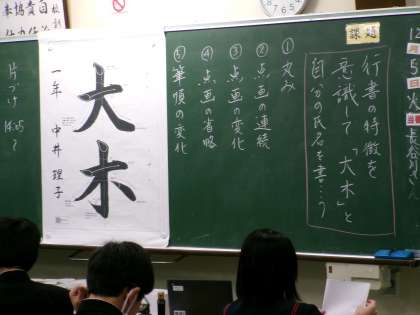 課題
行書の特徴を
意識して「大木」と
自分の氏名を書こう
①丸み
②点画の連続
③点画の変化
④点画の省略
⑤筆順の変化
大木
一年 中井理子
片づけ
12月5日